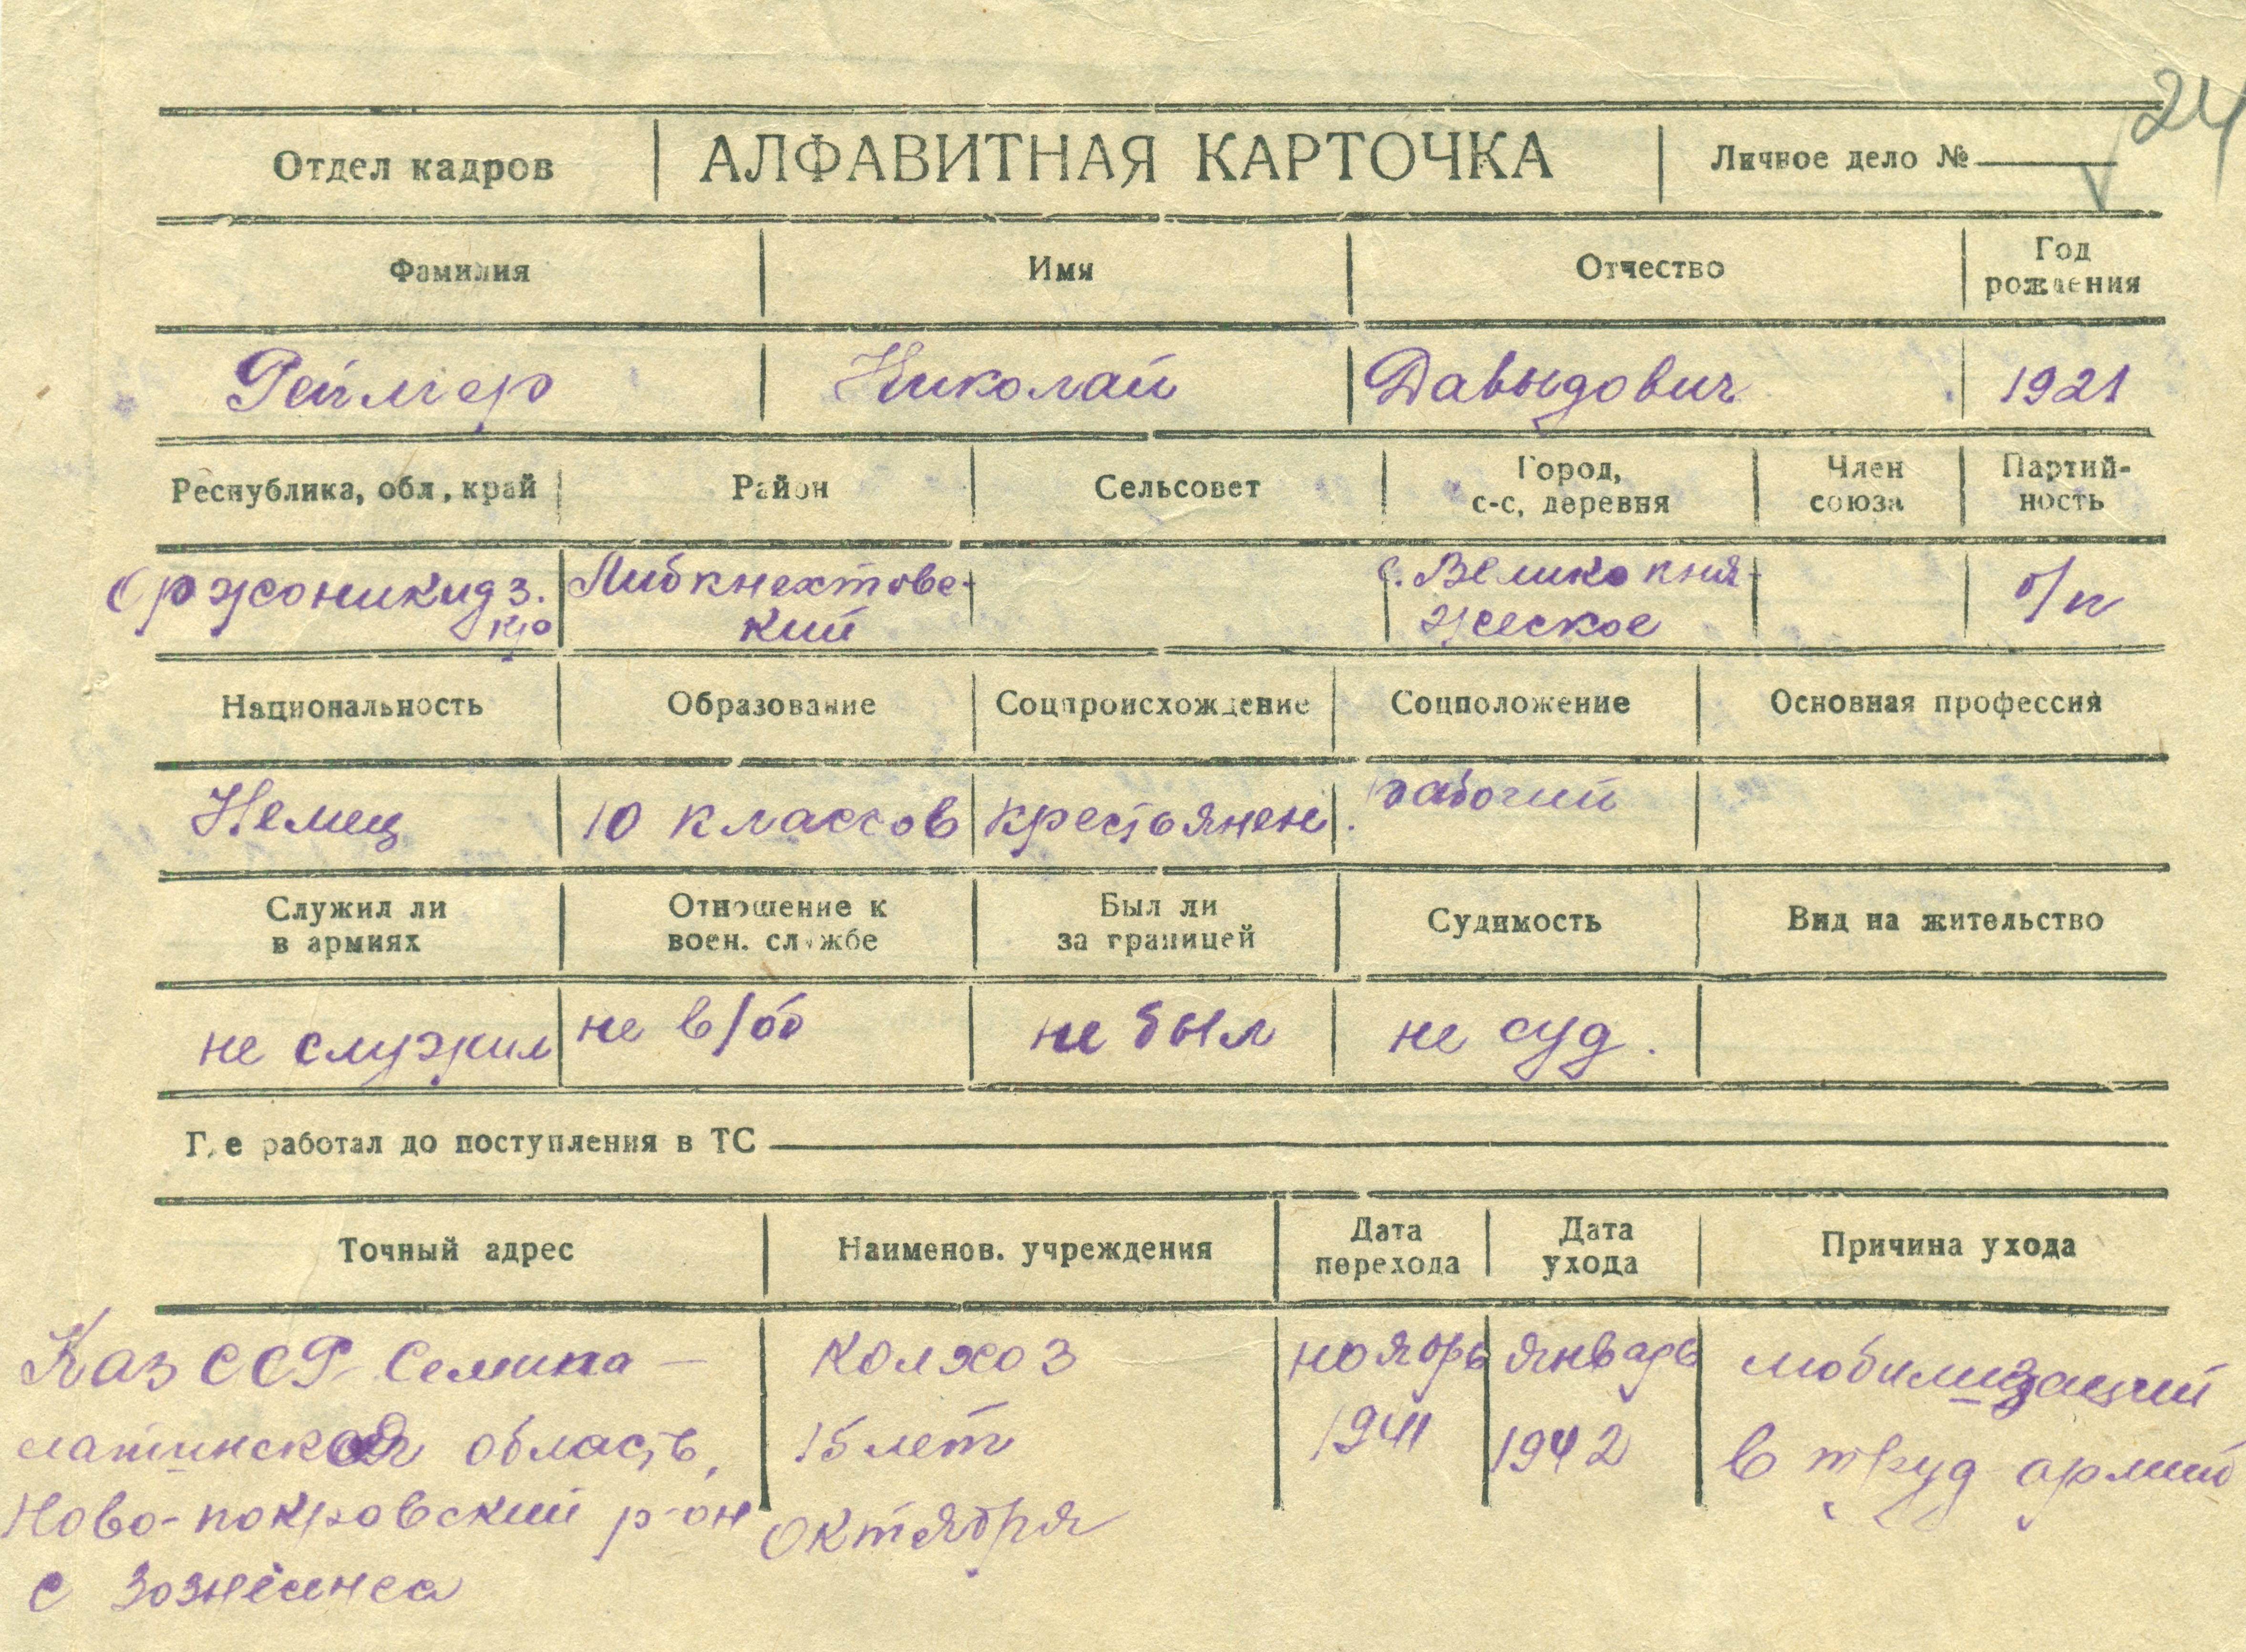 24
Отдел кадров АЛФАВИТНАЯ КАРТОЧКА Личное дело №
Фамилия Имя Отчество Год рождения
Реймер Николай Давыдович 1921
Республика, обл, край Район Сельсовет Город, с-с, деревня Член союза Партий-ность
Орджоникидз. Либкнехтовс- с. Великокня-
кий жеское б/п
Национальность Образование Соцпроисхождение Соцположение Основная профессия
Немец 10 классов крестьянен. рабочий
Служил ли в армиях Отношение к воен. службе Был ли за границей Судимость Вид на жительство
не служил не в/об не был не суд.
Где работал до поступления в ТС
Точный адрес Наименов. учреждения Дата перехода Дата ухода Причина ухода
Каз ССР Семипа- колхоз ноябрь январь мобилизаций
латинская область, 15 лет 1941 1942 в труд армий
Ново-покровский р-он октября
с